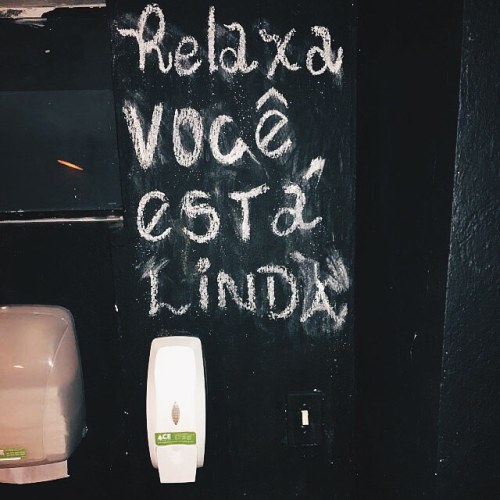 Relaxa
VOCÊ
ESTÁ
LINDA